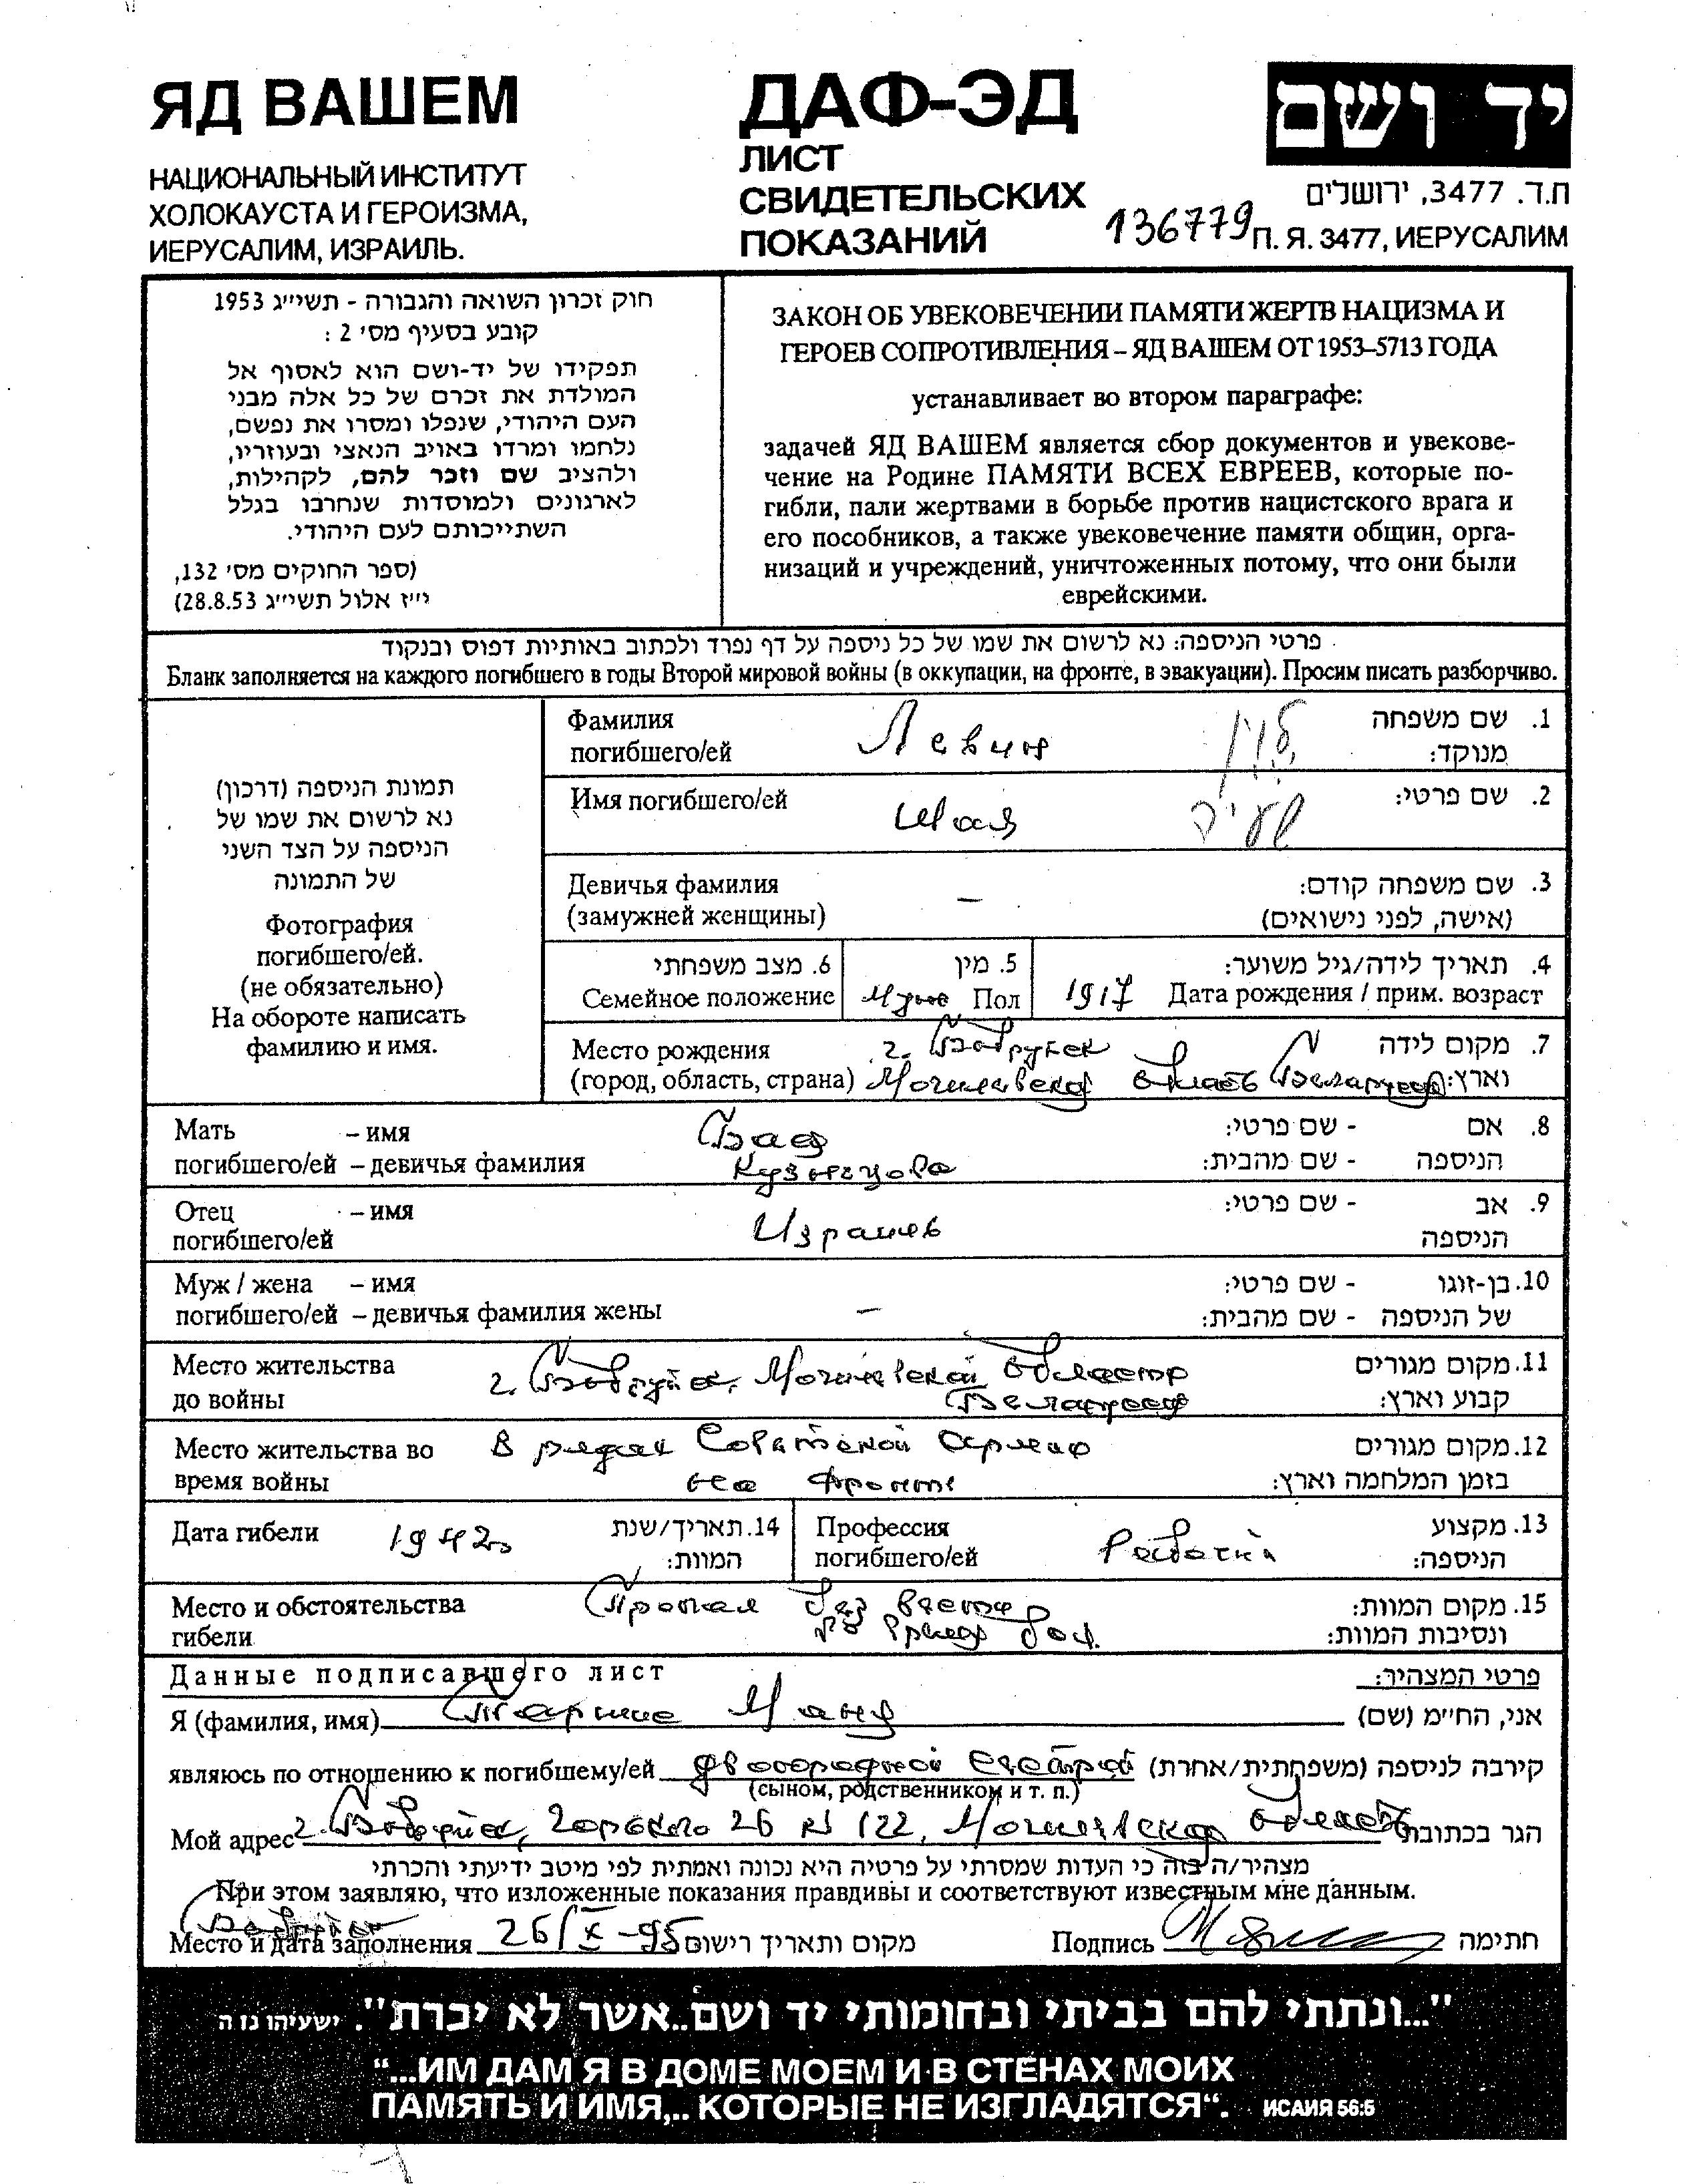 ЯД ВАШЕМ
НАЦИОНАЛЬНЫЙ ИНСТИТУТ
ХОЛОКАУСТА И ГЕРОИЗМА,
ИЕРУСАЛИМ, ИЗРАИЛЬ.
ДАФ-ЭД
ЛИСТ
СВИДЕТЕЛЬСКИХ
ПОКАЗАНИЙ
136779
יד ושם
ת.ד. 3477, ירושלים
П. Я. 3477, ИЕРУСАЛИМ
חוק זכרון השואה והגבורה - תשי״ג 1953
קובע בסעיף מס' 2 :
תפקידו של יד-ושם הוא לאסוף אל
המולדת את זכרם של כל אלה מבני
העם היהודי, שנפלו ומסרו את נפשם,
נלחמו ומרדו באויב הנאצי ובעוזריו,
ולהציב שם וזכר להם, לקהילות,
לארגונים ולמוסדות שנחרבו בגלל
השתייכותם לעם היהודי.
(ספר החוקים מס' 132,
י״ז אלול תשי״ג 28.8.53)
ЗАКОН ОБ УВЕКОВЕЧЕНИИ ПАМЯТИ ЖЕРТВ НАЦИЗМА И
ГЕРОЕВ СОПРОТИВЛЕНИЯ – ЯД ВАШЕМ ОТ 1953–5713 ГОДА
устанавливает во втором параграфе:
задачей ЯД ВАШЕМ является сбор документов и увекове-
чение на Родине ПАМЯТИ ВСЕХ ЕВРЕЕВ, которые по-
гибли, пали жертвами в борьбе против нацистского врага и
его пособников, а также увековечение памяти общин, орга-
низаций и учреждений, уничтоженных потому, что они были
еврейскими.
פרטי הניספה: נא לרשום את שמו של כל ניספה על דף נפרד ולכתוב באותיות דפוס ובנקוד
Бланк заполняется на каждого погибшего в годы Второй мировой войны (в оккупации, на фронте, в эвакуации). Просим писать разборчиво.
תמונת הניספה (דרכון)
נא לרשום את שמו של
הניספה על הצד השני
של התמונה
Фотография
погибшего/ей.
(не обязательно)
На обороте написать
фамилию и имя.
Фамилия Левин לוין 1. שם משפחה
погибшего/ей מנוקד:
Имя погибшего/ей Шая ישעיה 2. שם פרטי:
Девичья фамилия – 3. שם משפחה קודם:
(замужней женщины) (אישה, לפני נישואים)
6. מצב משפחתי 5. מין 4. תאריך לידה/גיל משוער:
Семейное положение Муж Пол 1917 Дата рождения / прим. возраст
Место рождения г. Бобруйск 7. מקום לידה
(город, область, страна) Могилевская область Беларусь וארץ:
Мать – имя Бася 8. אם - שם פרטי:
погибшего/ей – девичья фамилия Кузнецова הניספה - שם מהבית:
Отец – имя Израиль 9. אב - שם פרטי:
погибшего/ей הניספה
Муж / жена – имя 10. בן-זוגו - שם פרטי:
погибшего/ей – девичья фамилия жены – של הניספה - שם מהבית:
Место жительства г. Бобруйск, Могилевской области 11. מקום מגורים
до войны קבוע וארץ:
Место жительства во В рядах Советской Армии 12. מקום מגורים
время войны на фронте בזמן המלחמה וארץ:
Дата гибели 1942 14. תאריך/שנת Профессия Рабочий 13. מקצוע
המוות: погибшего/ей הניספה:
Место и обстоятельства Пропал без вести 15. מקום המוות:
гибели ונסיבות המוות:
Данные подписавшего лист פרטי המצהיר:
Я (фамилия, имя) Маня אני, הח״מ (שם)
являюсь по отношению к погибшему/ей двоюродной сестрой קירבה לניספה (משפחתית/אחרת)
(сыном, родственником и т. п.)
Мой адрес г. Бобруйск, Горького 26 122, Могилевская область הגר בכתובת
מצהיר/ה בזה כי העדות שמסרתי על פרטיה היא נכונה ואמתית לפי מיטב ידיעתי והכרתי
При этом заявляю, что изложенные показания правдивы и соответствуют известным мне данным.
Бобруйск
Место и дата заполнения 26/X – 95 מקום ותאריך רישום Подпись חתימה
"...ונתתי להם בביתי ובחומותי יד ושם..אשר לא יכרת". ישעיהו נו ה
“...ИМ ДАМ Я В ДОМЕ МОЕМ И В СТЕНАХ МОИХ
ПАМЯТЬ И ИМЯ,.. КОТОРЫЕ НЕ ИЗГЛАДЯТСЯ“. ИСАИЯ 56:5